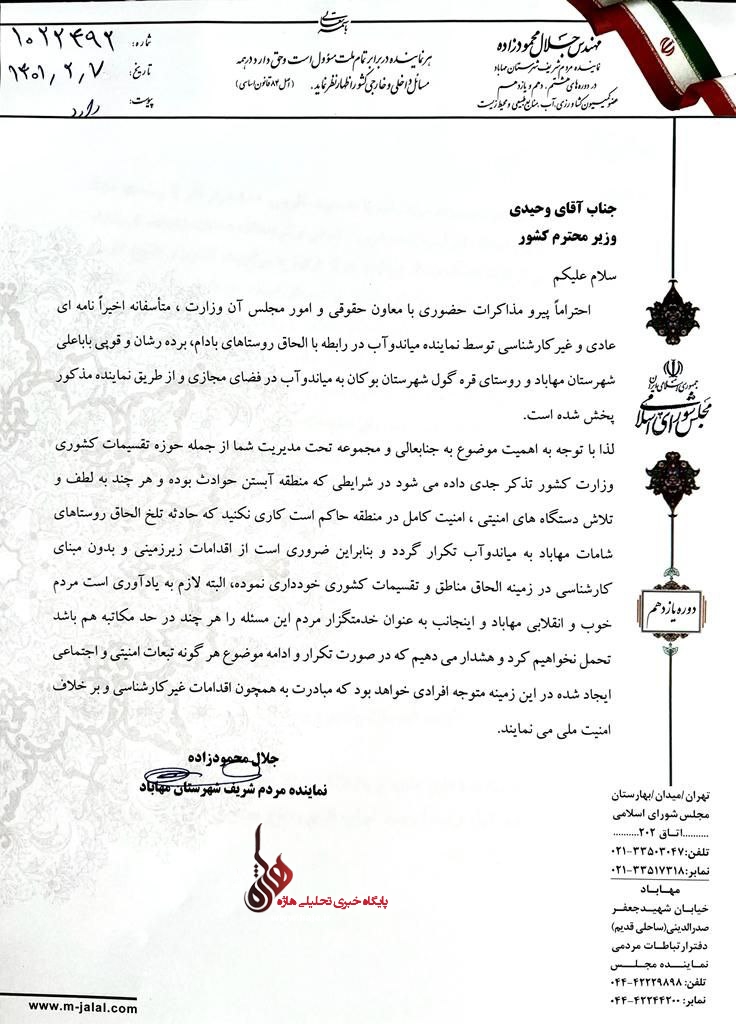 بسمه تعالی
مهندس جلال محمودزاده
نماینده مردم شریف شهرستان مهاباد
در دوره‌های هشتم، دهم و یازدهم
عضو کمیسیون کشاورزی، آب، منابع طبیعی و محیط زیست
هر نماینده در برابر تمام ملت مسؤول است و حق دارد در همه
مسائل داخلی و خارجی کشور اظهار نظر نماید. (اصل ۸۴ قانون اساسی)
شماره: ۱۰۲۲۴۹۲
تاریخ: ۱۴۰۱/۲/۷
پیوست: دارد
جناب آقای وحیدی
وزیر محترم کشور
سلام علیکم
احتراماً پیرو مذاکرات حضوری با معاون حقوقی و امور مجلس آن وزارت ، متأسفانه اخیراً نامه ای
عادی و غیر کارشناسی توسط نماینده میاندوآب در رابطه با الحاق روستاهای بادام، برده رشان و قوپی باباعلی
شهرستان مهاباد و روستای قره گول شهرستان بوکان به میاندوآب در فضای مجازی و از طریق نماینده مذکور
پخش شده است.
لذا با توجه به اهمیت موضوع به جنابعالی و مجموعه تحت مدیریت شما از جمله حوزه تقسیمات کشوری
وزارت کشور تذکر جدی داده می شود در شرایطی که منطقه آبستن حوادث بوده و هر چند به لطف و
تلاش دستگاه های امنیتی ، امنیت کامل در منطقه حاکم است کاری نکنید که حادثه تلخ الحاق روستاهای
شامات مهاباد به میاندوآب تکرار گردد و بنابراین ضروری است از اقدامات زیرزمینی و بدون مبنای
کارشناسی در زمینه الحاق مناطق و تقسیمات کشوری خودداری نموده، البته لازم به یادآوری است مردم
خوب و انقلابی مهاباد و اینجانب به عنوان خدمتگزار مردم این مسئله را هر چند در حد مکاتبه هم باشد
تحمل نخواهیم کرد و هشدار می دهیم که در صورت تکرار و ادامه موضوع هر گونه تبعات امنیتی و اجتماعی
ایجاد شده در این زمینه متوجه افرادی خواهد بود که مبادرت به همچون اقدامات غیر کارشناسی و بر خلاف
امنیت ملی می نمایند.
جلال محمودزاده
نماینده مردم شریف شهرستان مهاباد
هاژه
پایگاه خبری تحلیلی هاژه
جمهوری اسلامی ایران
مجلس شورای اسلامی
دوره یازدهم
تهران/میدان/بهارستان
مجلس شورای اسلامی
..........اتاق ۲۰۲..........
تلفن: ۳۳۵۰۳۰۴۷-۰۲۱
نمابر: ۳۳۵۱۷۳۱۸-۰۲۱
مهاباد
خیابان شهید جعفر
صدرالدینی(ساحلی قدیم)
دفتر ارتباطات مردمی
نماینده مجلس
تلفن: ۴۲۲۲۹۸۹۸-۰۴۴
نمابر: ۴۲۲۴۴۲۰۰-۰۴۴
www.m-jalal.com